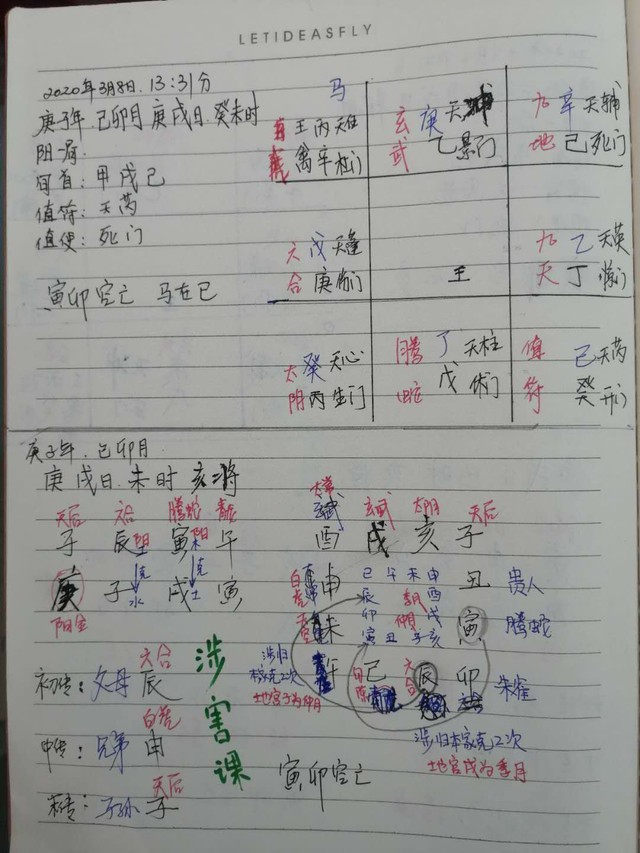 LETIDEASFLY
2020年3月8日. 13:31分
庚子年.己卯月 庚戌日.癸未时
阳一局.
旬首: 甲戌己
值符: 天芮
值使: 死门
寅卯空亡 马在巳
马
壬丙天任
禽辛杜门
玄武
庚
乙景门
九地
辛天辅
己死门
六合
戊天蓬
庚伤门
壬
九天
乙天英
丁惊门
太阴
癸天心
丙生门
腾蛇
丁天柱
戊休门
值符
己天芮
癸开门
庚子年.己卯月
庚戌日.未时 亥将
天后 六合 腾蛇 青龙
子 辰 寅 午
庚 子 戌 寅
阳金
克
水
克
土
太常 玄武 太阴 天后
酉 戌 亥 子
白虎 申
丑 贵人
未
寅 腾蛇
午 巳 辰 卯 朱雀
六合
巳 午 未 申
辰 酉
卯 戌
寅 丑 子 亥
初传: 父母 辰
六合
中传: 兄弟 申
白虎
末传: 子孙 子
天后
涉害课
涉归
本家克2次
地宫子为仲月
涉归本家克2次
地宫戌为季月
寅卯空亡